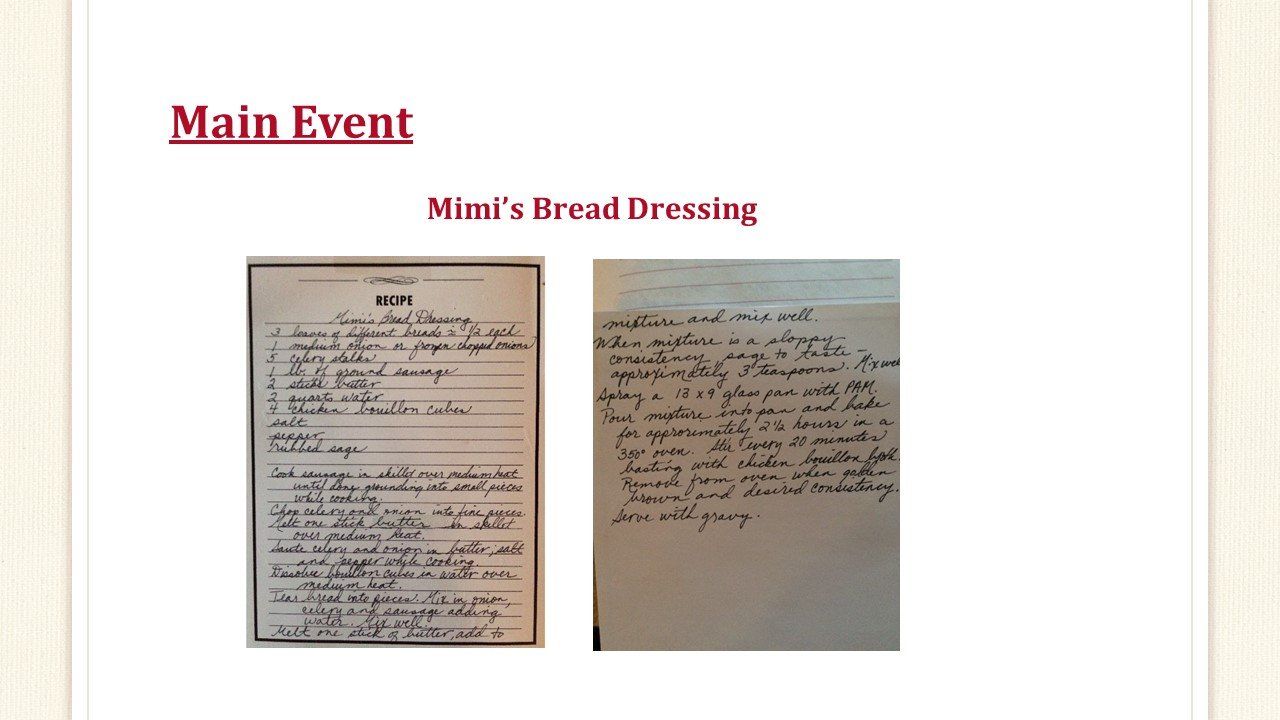 Main Event
Mimi’s Bread Dressing
RECIPE
Mimi's Bread Dressing
3 loaves of different breads ≈ 1/2 each
1 medium onion or frozen chopped onions
5 celery stalks
1 lb. of ground sausage
2 sticks butter
2 quarts water
4 chicken bouillon cubes
salt
pepper
rubbed sage
Cook sausage in skillet over medium heat
until done grounding into small pieces
while cooking.
Chop celery and onion into fine pieces.
Melt one stick butter in skillet
over medium heat.
Saute celery and onion in butter, salt
and pepper while cooking.
Dissolve bouillon cubes in water over
medium heat.
Tear bread into pieces. Mix in onion,
celery and sausage adding
water. Mix well.
Melt one stick of butter, add to
mixture and mix well.
When mixture is a sloppy
consistency, sage to taste -
approximately 3 teaspoons. Mix well
Spray a 13 x 9 glass pan with PAM.
Pour mixture into pan and bake
for approximately 2 1/2 hours in a
350° oven. Stir every 20 minutes
basting with chicken bouillon broth.
Remove from oven when golden
brown and desired consistency.
Serve with gravy.